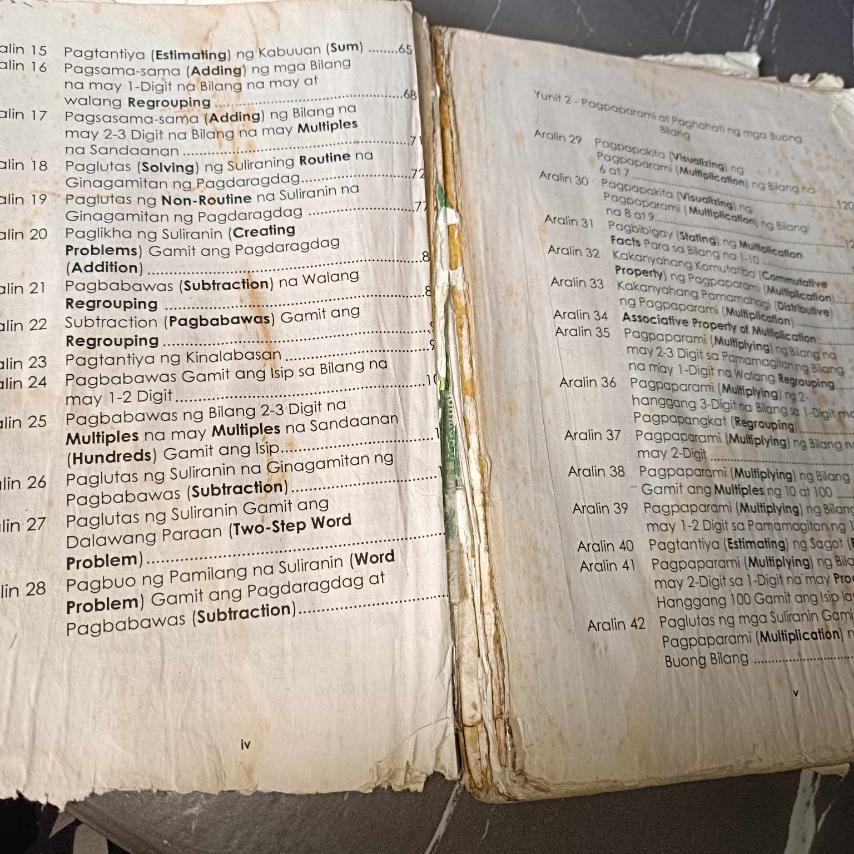 alin 15 Pagtantiya (Estimating) ng Kabuuan (Sum) ........65
alin 16 Pagsama-sama (Adding) ng mga Bilang
na may 1-Digit na Bilang na may at
walang Regrouping ..........68
alin 17 Pagsasama-sama (Adding) ng Bilang na
may 2-3 Digit na Bilang na may Multiples
na Sandaanan ..........71
alin 18 Paglutas (Solving) ng Suliraning Routine na
Ginagamitan ng Pagdaragdag..........72
alin 19 Paglutas ng Non-Routine na Suliranin na
Ginagamitan ng Pagdaragdag ..........77
alin 20 Paglikha ng Suliranin (Creating
Problems) Gamit ang Pagdaragdag
(Addition) ..........8
alin 21 Pagbabawas (Subtraction) na Walang
Regrouping ..........8
alin 22 Subtraction (Pagbabawas) Gamit ang
Regrouping ..........
alin 23 Pagtantiya ng Kinalabasan ..........
alin 24 Pagbabawas Gamit ang Isip sa Bilang na
may 1-2 Digit ..........10
alin 25 Pagbabawas ng Bilang 2-3 Digit na
Multiples na may Multiples na Sandaanan
(Hundreds) Gamit ang Isip..........1
alin 26 Paglutas ng Suliranin na Ginagamitan ng
Pagbabawas (Subtraction)..........
lin 27 Paglutas ng Suliranin Gamit ang
Dalawang Paraan (Two-Step Word
Problem)..........
lin 28 Pagbuo ng Pamilang na Suliranin (Word
Problem) Gamit ang Pagdaragdag at
Pagbabawas (Subtraction)..........
iv
Yunit 2 - Pagpaparami at Paghahati ng mga Buong
Bilang
Aralin 29 Pagpapakita (Visualizing) ng
Pagpaparami (Multiplication) ng Bilang na
6 at 7 ..........120
Aralin 30 Pagpapakita (Visualizing) ng
Pagpaparami (Multiplication) ng Bilang
na 8 at 9..........12
Aralin 31 Pagbibigay (Stating) ng Multiplication
Facts Para sa Bilang na 1-10 ..........
Aralin 32 Kakanyahang Komutatibo (Commutative
Property) ng Pagpaparami (Multiplication)
Aralin 33 Kakanyahang Pamamahagi (Distributive)
ng Pagpaparami (Multiplication) ..........
Aralin 34 Associative Property of Multiplication ..........
Aralin 35 Pagpaparami (Multiplying) ng Bilang na
may 2-3 Digit sa Pamamagitan ng Bilang
na may 1-Digit na Walang Regrouping ....
Aralin 36 Pagpaparami (Multiplying) ng 2-
hanggang 3-Digit na Bilang sa 1-Digit
Pagpapangkat (Regrouping)..........
Aralin 37 Pagpaparami (Multiplying) ng Bilang
may 2-Digit ..........
Aralin 38 Pagpaparami (Multiplying) ng Bilang
Gamit ang Multiples ng 10 at 100 ....
Aralin 39 Pagpaparami (Multiplying) ng Bilang
may 1-2 Digit sa Pamamagitan ng 1
Aralin 40 Pagtantiya (Estimating) ng Sagot (
Aralin 41 Pagpaparami (Multiplying) ng
may 2-Digit sa 1-Digit na may
Hanggang 100 Gamit ang Isip
Aralin 42 Paglutas ng mga Suliranin
Pagpaparami (Multiplication)
Buong Bilang ..........
v